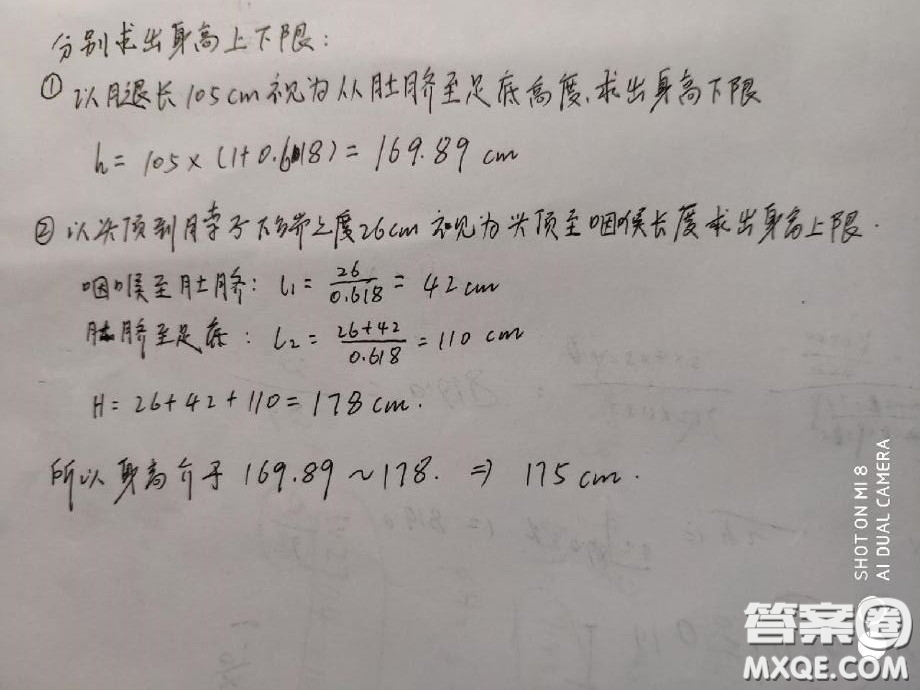 分别求出身高上下限：
① 以腿长105cm视为从肚脐至足底高度，求出身高下限
h = 105 × (1+0.618) = 169.89 cm
② 以头顶到脖子下端长度26cm视为头顶至咽喉长度求出身高上限.
咽喉至肚脐: l₁ = 26/0.618 = 42 cm
肚脐至足底: l₂ = (26+42)/0.618 = 110 cm
H = 26+42+110 = 178 cm.
所以身高介于 169.89 ~ 178. ⇒ 175 cm.
SHOT ON MI 8
AI DUAL CAMERA
答案圈
MXQE.COM